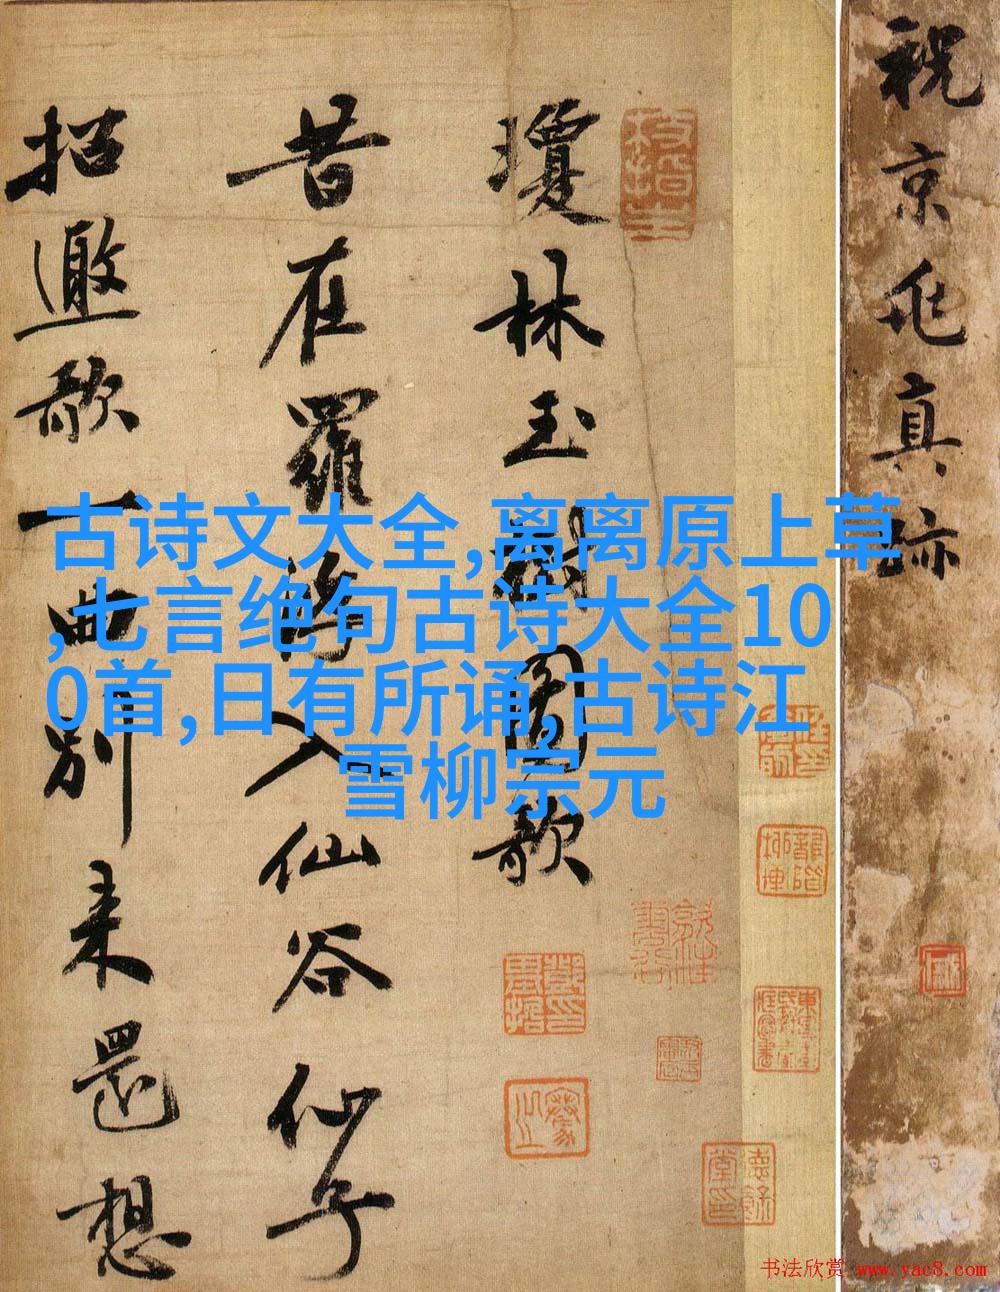 祝京兆真跡
瓊林玉樹圖歌
昔在羅浮入仙谷仙子
招邀歌一曲別來還想
古诗文大全,离离原上草
,七言绝句古诗大全10
0首,日有所诵,古诗江
雪柳宗元
书法欣赏 www.yac8.com